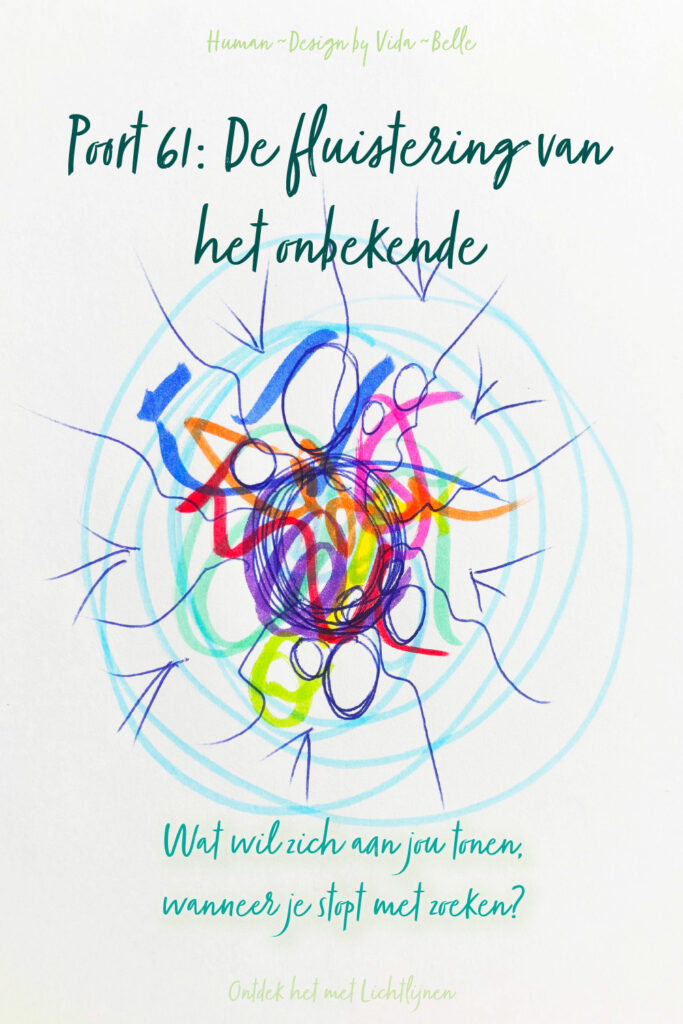 Human ~Design by Vida ~Belle
Poort 61: De fluistering van
het onbekende
Wat wil zich aan jou tonen,
wanneer je stopt met zoeken?
Ontdek het met Lichtlijnen